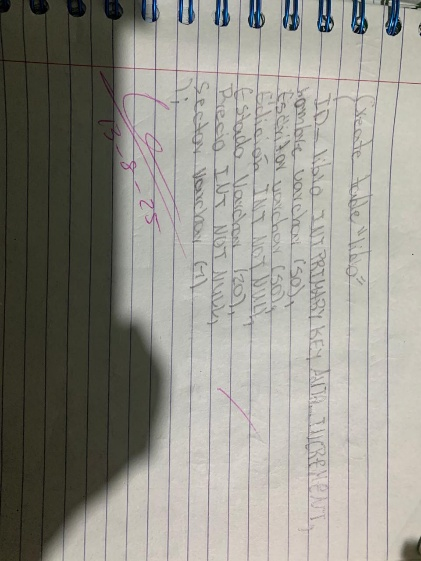 Create table "libro"
ID_libro INT PRIMARY KEY AUTO_INCREMENT,
nombre varchar (50),
Escritor varchar (50),
Edición INT NOT NULL,
Estado Varchar (20),
Precio INT NOT NULL,
Sector varchar (4)
);
13-8-25